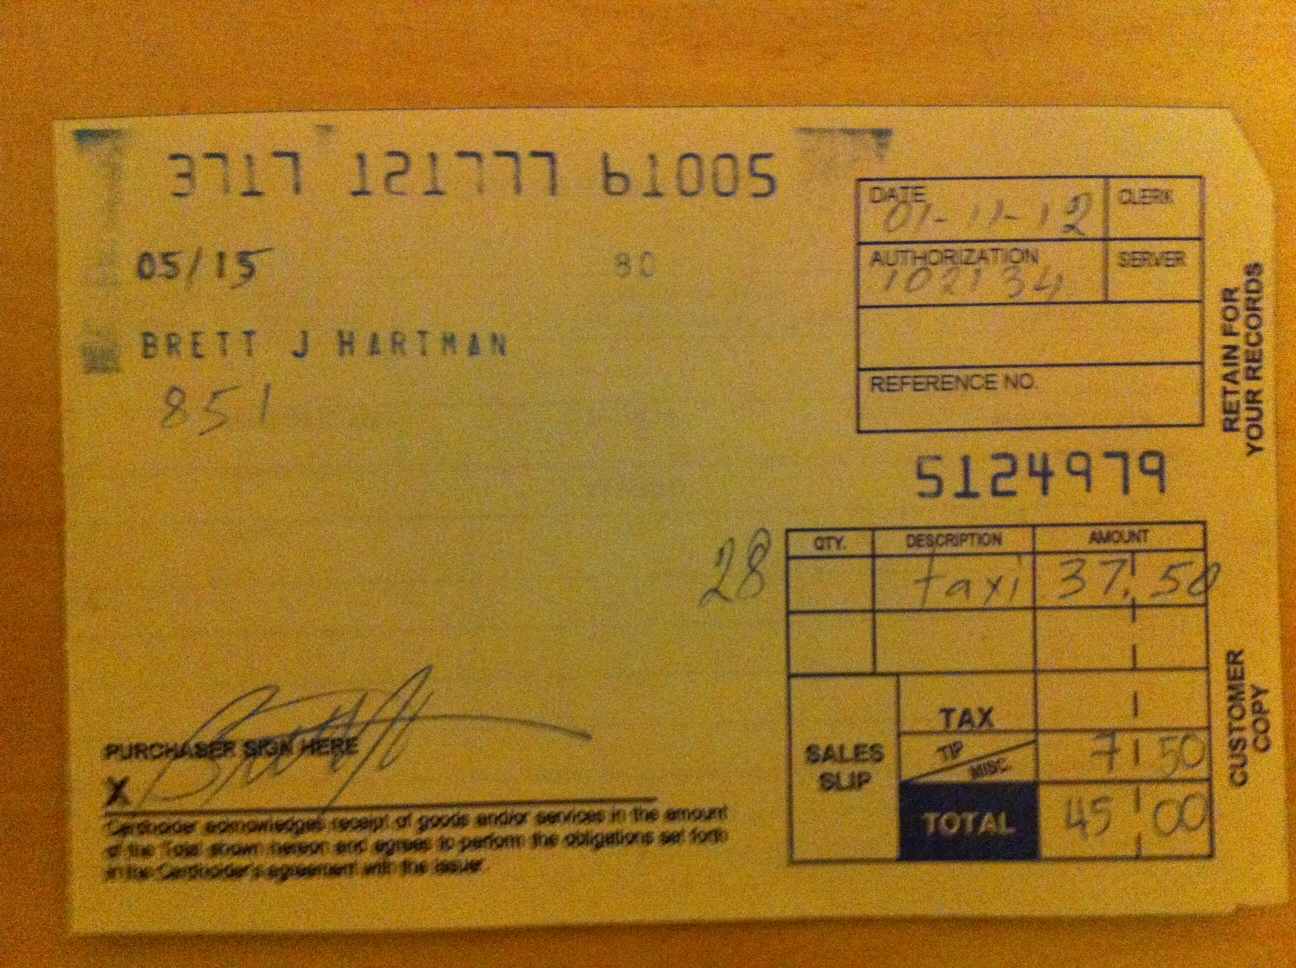 3717 121777 61005
DATE 01-11-12 CLERK
05/15 80
AUTHORIZATION 102134 SERVER
BRETT J HARTMAN
851
REFERENCE NO.
RETAIN FOR
YOUR RECORDS
5124979
QTY. DESCRIPTION AMOUNT
28 taxi 37.50
TAX
SALES
SLIP
TIP
MISC.
7 50
TOTAL 45 00
CUSTOMER
COPY
PURCHASER SIGN HERE
X
Cardholder acknowledges receipt of goods and/or services in the amount
of the Total shown hereon and agrees to perform the obligations set forth
in the Cardholder's agreement with the issuer.